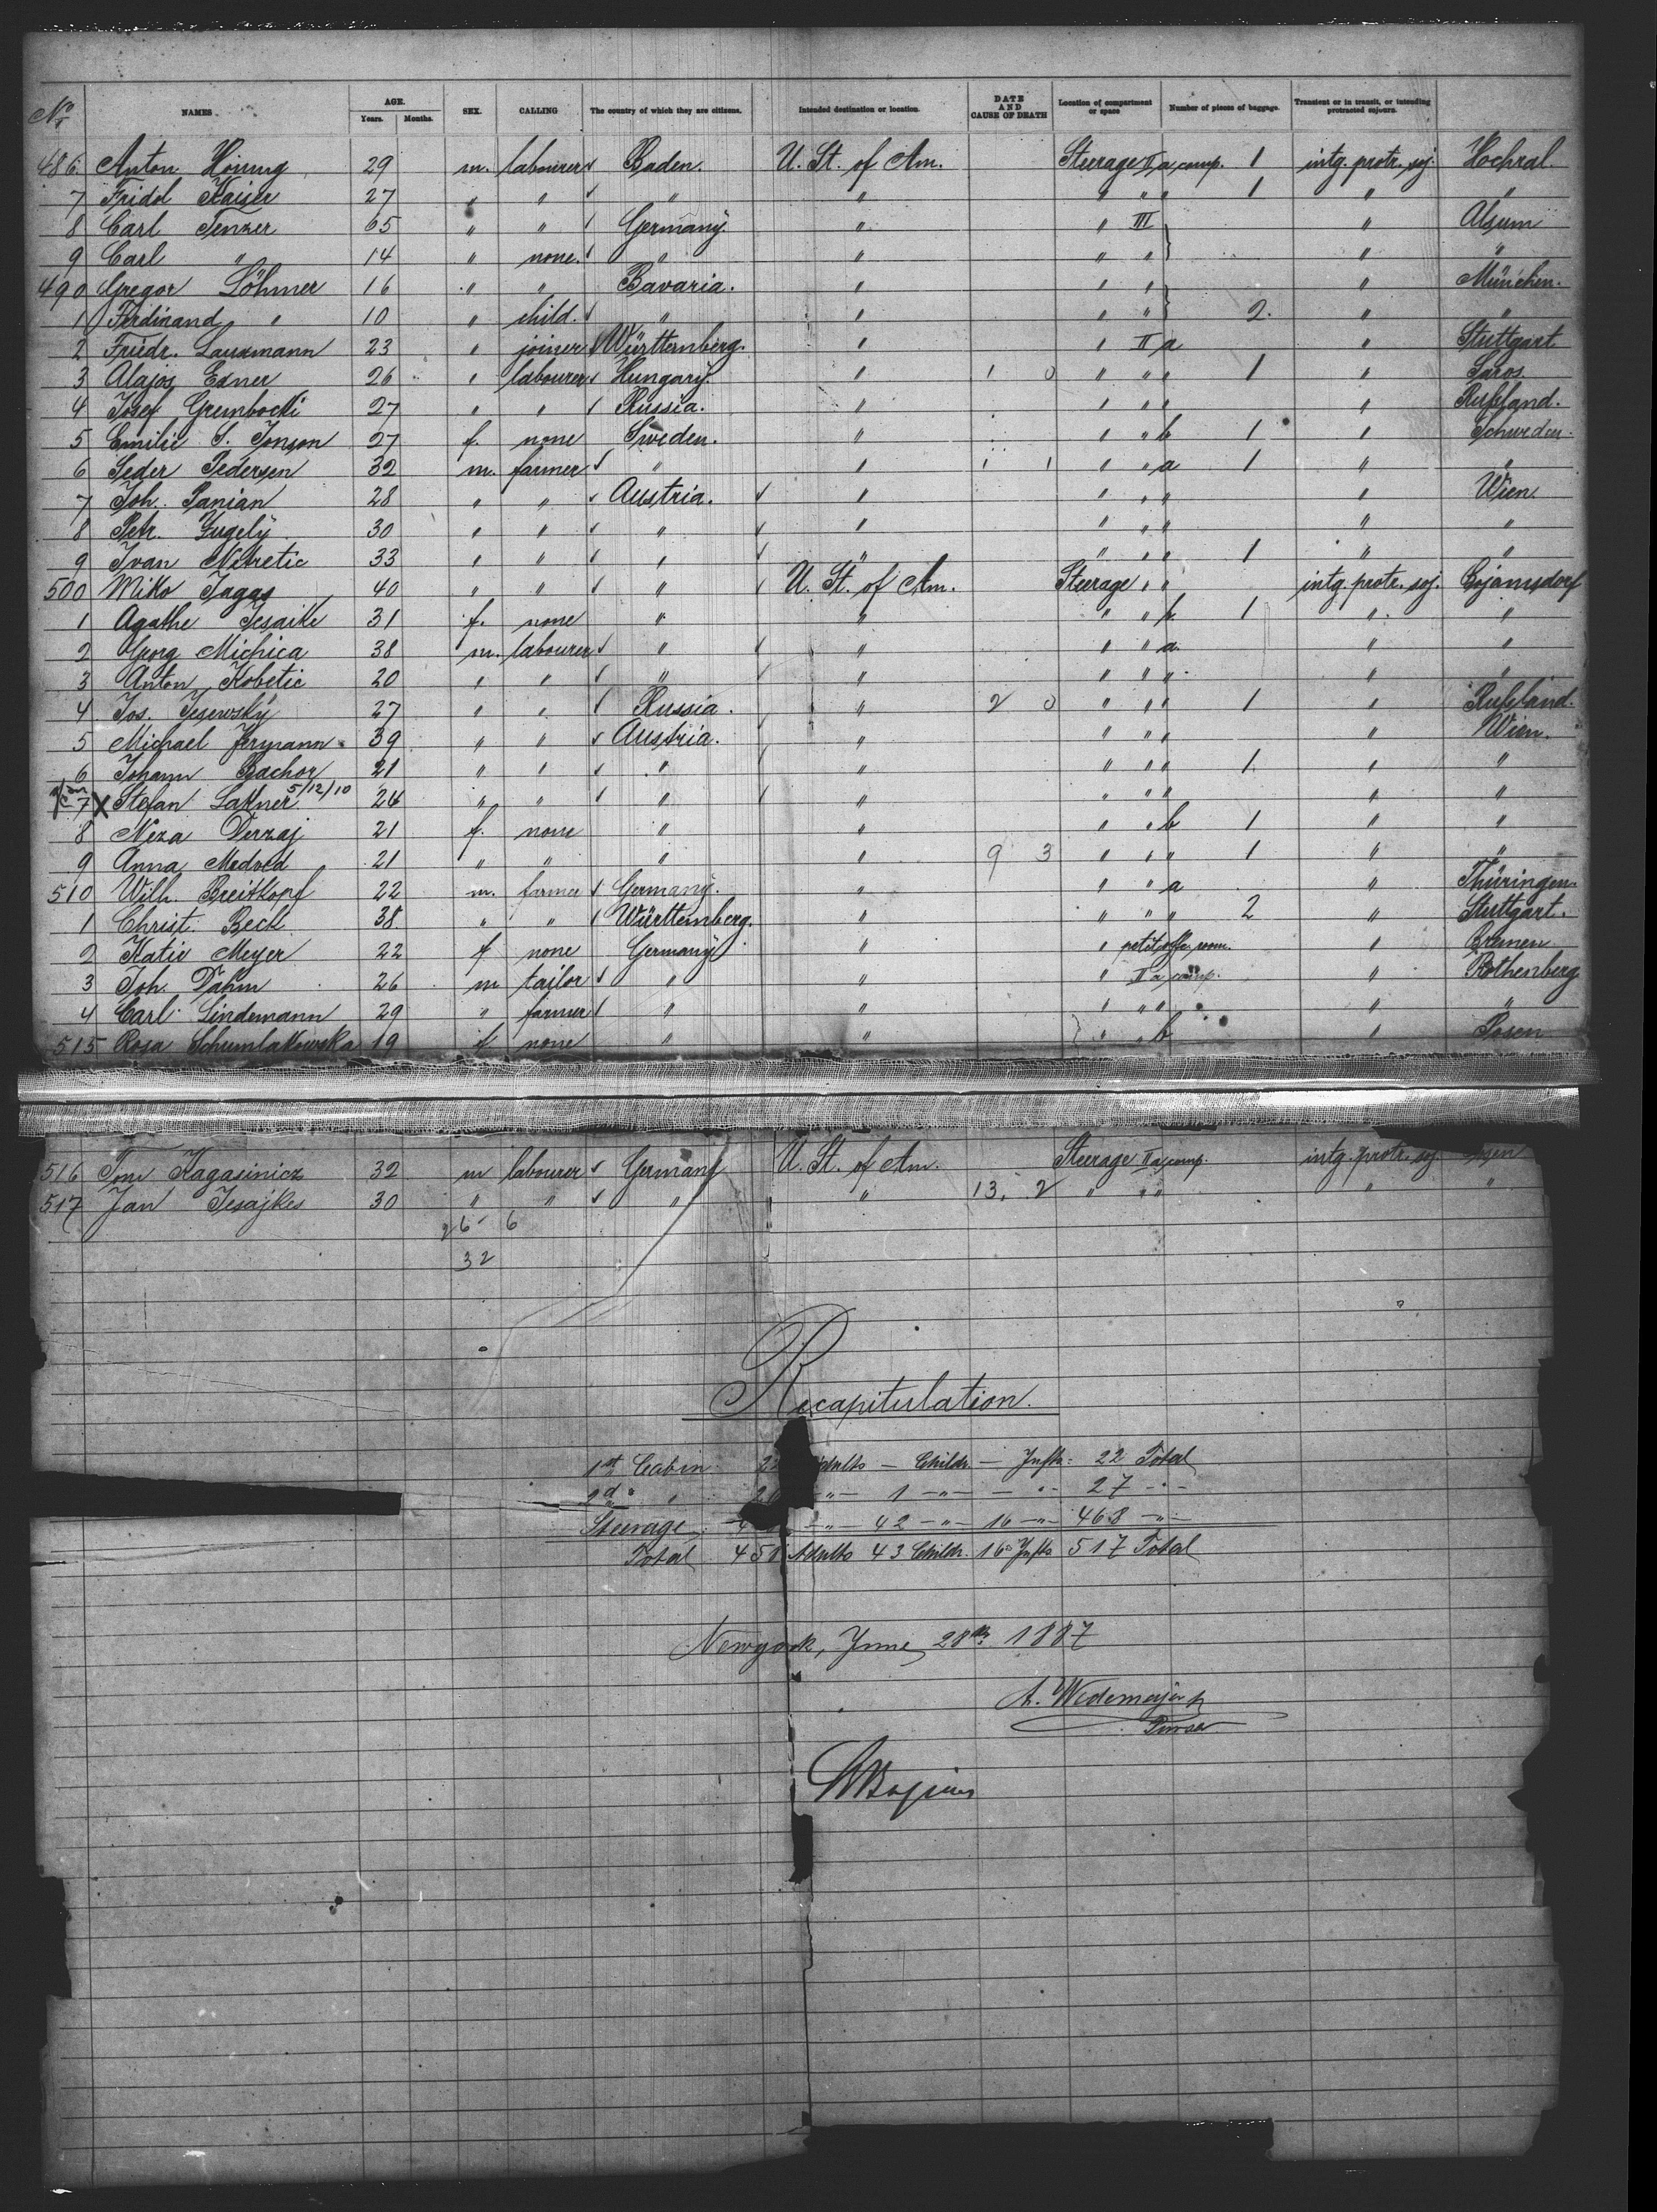 No NAMES. AGE. Years. Months. SEX. CALLING The country of which they are citizens. Intended destination or location. DATE AND CAUSE OF DEATH Location of compartment or space Number of pieces of baggage. Transient or in transit, or intending protracted sojourn.
486 Anton 29 m. labourer Baden. U. St. of Am. Steerage II a comp. 1 intg. protr. soj. Hochral
7 Fridol Kaiser 27 " " " " " " " 1 " "
8 Carl Tenzer 65 " " Germany. " " III " Alsum
9 Carl " 14 " none. " " " " " "
490 Gregor Löhmer 16 " " Bavaria. " " " " München.
1 Ferdinand " 10 " child. " " " " 2. " "
2 Friedr. Lauxmann 23 " joiner Württemberg. " " II a " Stuttgart
3 Alajos Exner 26 " labourer Hungary. " 1 0 " " " 1 " Saros.
4 Josef Grembocki 27 " " Russia. " " " " " Rußland.
5 Emilie S. Jonson 27 f. none Sweden. " " " b 1 " Schweden.
6 Peder Pedersen 32 m. farmer " " 1 1 " " a 1 " "
7 Joh. Panian 28 " " Austria. " " " " " Wien
8 Petr. 30 " " " " " " " " "
9 Ivan 33 " " " " " " " 1 " "
500 Miko Jagas 40 " " " U. St. of Am. Steerage " " intg. protr. soj.
1 Agathe 31 f. none " " " " b. 1 " "
2 Georg Michica 38 m. labourer " " " " a. " "
3 Anton Kobetic 20 " " " " " " " " "
4 Jos. Jesewsky 27 " " Russia. " 2 0 " " " 1 " Rußland.
5 Michael 39 " " Austria. " " " " " Wien.
6 Johann Bachor 21 " " " " " " " 1. " "
7 X Stefan Lakner 5/12/10 26 " " " " " " " " "
8 Neza Derzaj 21 f. none " " " " b 1 " "
9 Anna Medved 21 " " " " 9 3 " " " 1 " "
510 Wilh. Breitkopf 22 m. farmer Germany. " " " a " Thüringen.
1 Christ. Beck 38. " " Württemberg. " " " " 2 " Stuttgart.
2 Katie Meyer 22 f none Germany " " " Bremen
3 Joh. Dahm 26 m tailor " " " II a comp. " Rothenberg
4 Carl Lindemann 29 " farmer " " " " " " "
515 Rosa Schumlakowska 19 f none " " " " b " Posen
516 32 m labourer Germany U. St. of Am. Steerage II a comp. intg. protr. soj.
517 Jan Jesajkes 30 " " " " 13. 2 " " " " "
26 6
32
Recapitulation.
1st Cabin Adults — Childr. — Infts: 22 Total
2d " —"— 1 —"— — "— 27 —"—
Steerage —"— 42 —"— 16 —"— 468 —"—
Total 458 Adults 43 Childr. 16 Infts 517 Total
Newyork, June 28th 1887
A. Wedemeyer
Purser